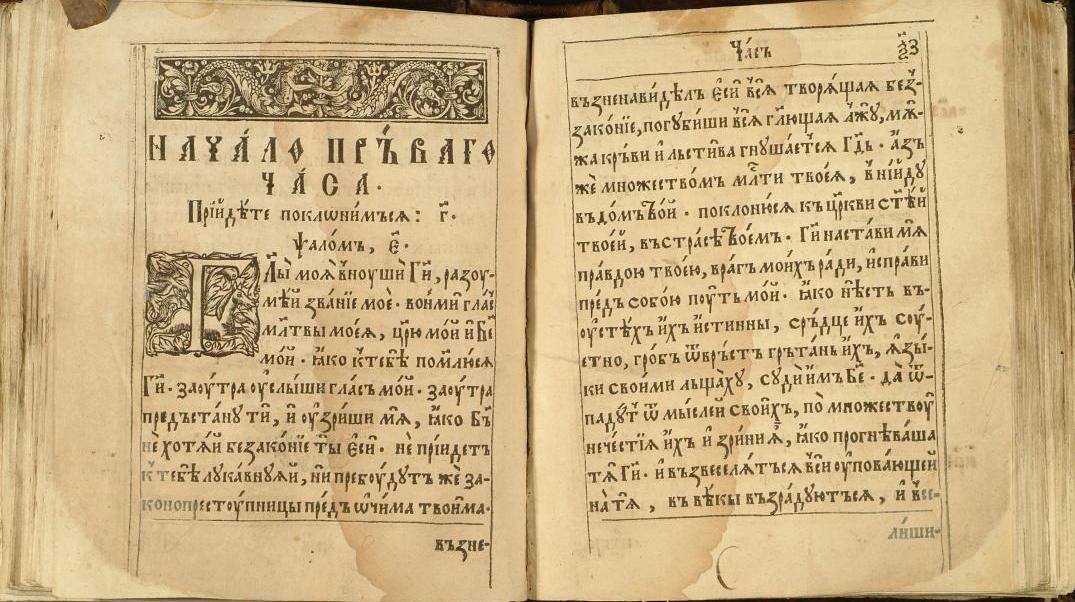 НАЧА́ЛО ПРЪ́ВАГО
ЧА́СА.
Прїйдѣ́те поклѡни́мъся: г҃.
Ѱало́мъ, є҃.
Гл҃ы моя̀ внꙋшѝ Ги҃, разоу-
мѣ́й зва́нїе моѐ. вонмѝ гла́съ
мл҃твы моеѧ̀, цр҃ю мо́й и҆ Бж҃е
мо́й. ꙗ҆́ко к̾тебѣ̀ помл҃юся
Ги҃. заоу́тра оуслы́ши гла́съ мо́й. заоу́тра
предъста́ну тѝ, и҆ оу҆́зриши мѧ̀, ꙗ҆́ко Бг҃ъ
не хотѧ́й безако́нїе ты̀ є҆сѝ. не прїи́детъ
к̾ тебѣ̀ лука́внуяй, ни пребоу́дутъ же за-
конопрестоу́пницы пре́дъ ѡ҆чи́ма твои́ма.
възне-
Ча́съ
възненави́дѣлъ є҆сѝ всѧ̀ творѧ́щая без-
зако́нїе, погуби́ши всѧ̀ гл҃ющая лжꙋ̀, мꙋ́-
жа кръ́ви и҆ льсти́ва гнуша́етсѧ Гд҃ь. а҆́зъ
же мно́жеством мл҃ти твоеѧ̀, вни́йду
въ до́мъ тво́й. поклоню́ся къ цр҃кви ст҃ѣ́й
твое́й, въ стра́сѣ твое́мъ. Ги҃ наста́ви мѧ̀
пра́вдою твое́ю, вра́гъ мои́хъ ра́ди, и҆спра́ви
пре́дъ собо́ю поу́ть мо́й. ꙗ҆́ко нѣ́сть въ-
оу҆стѣ́хъ и҆́хъ и҆́стинны, сръ́дце и҆́хъ соу́-
етно, гро́бъ ѿвръ́стъ гръта́нь и҆́хъ, ѧ҆зы́-
ки свои́ми льща́ху, судѝ и҆́мъ Бж҃е. да ѿ-
паду́тъ ѿ мы́слей свои́хъ, по мно́жествоу
нече́стїя и҆́хъ и҆зринѝ ѧ҆̀, ꙗ҆́ко прогнѣ́ваша
тѧ̀ Ги҃. и҆ възвеселѧ́тъся всѝ оу҆пова́ющей
на тѧ̀, въ вѣ́кы възра́дуютъся, и҆ все-
ли́ши-